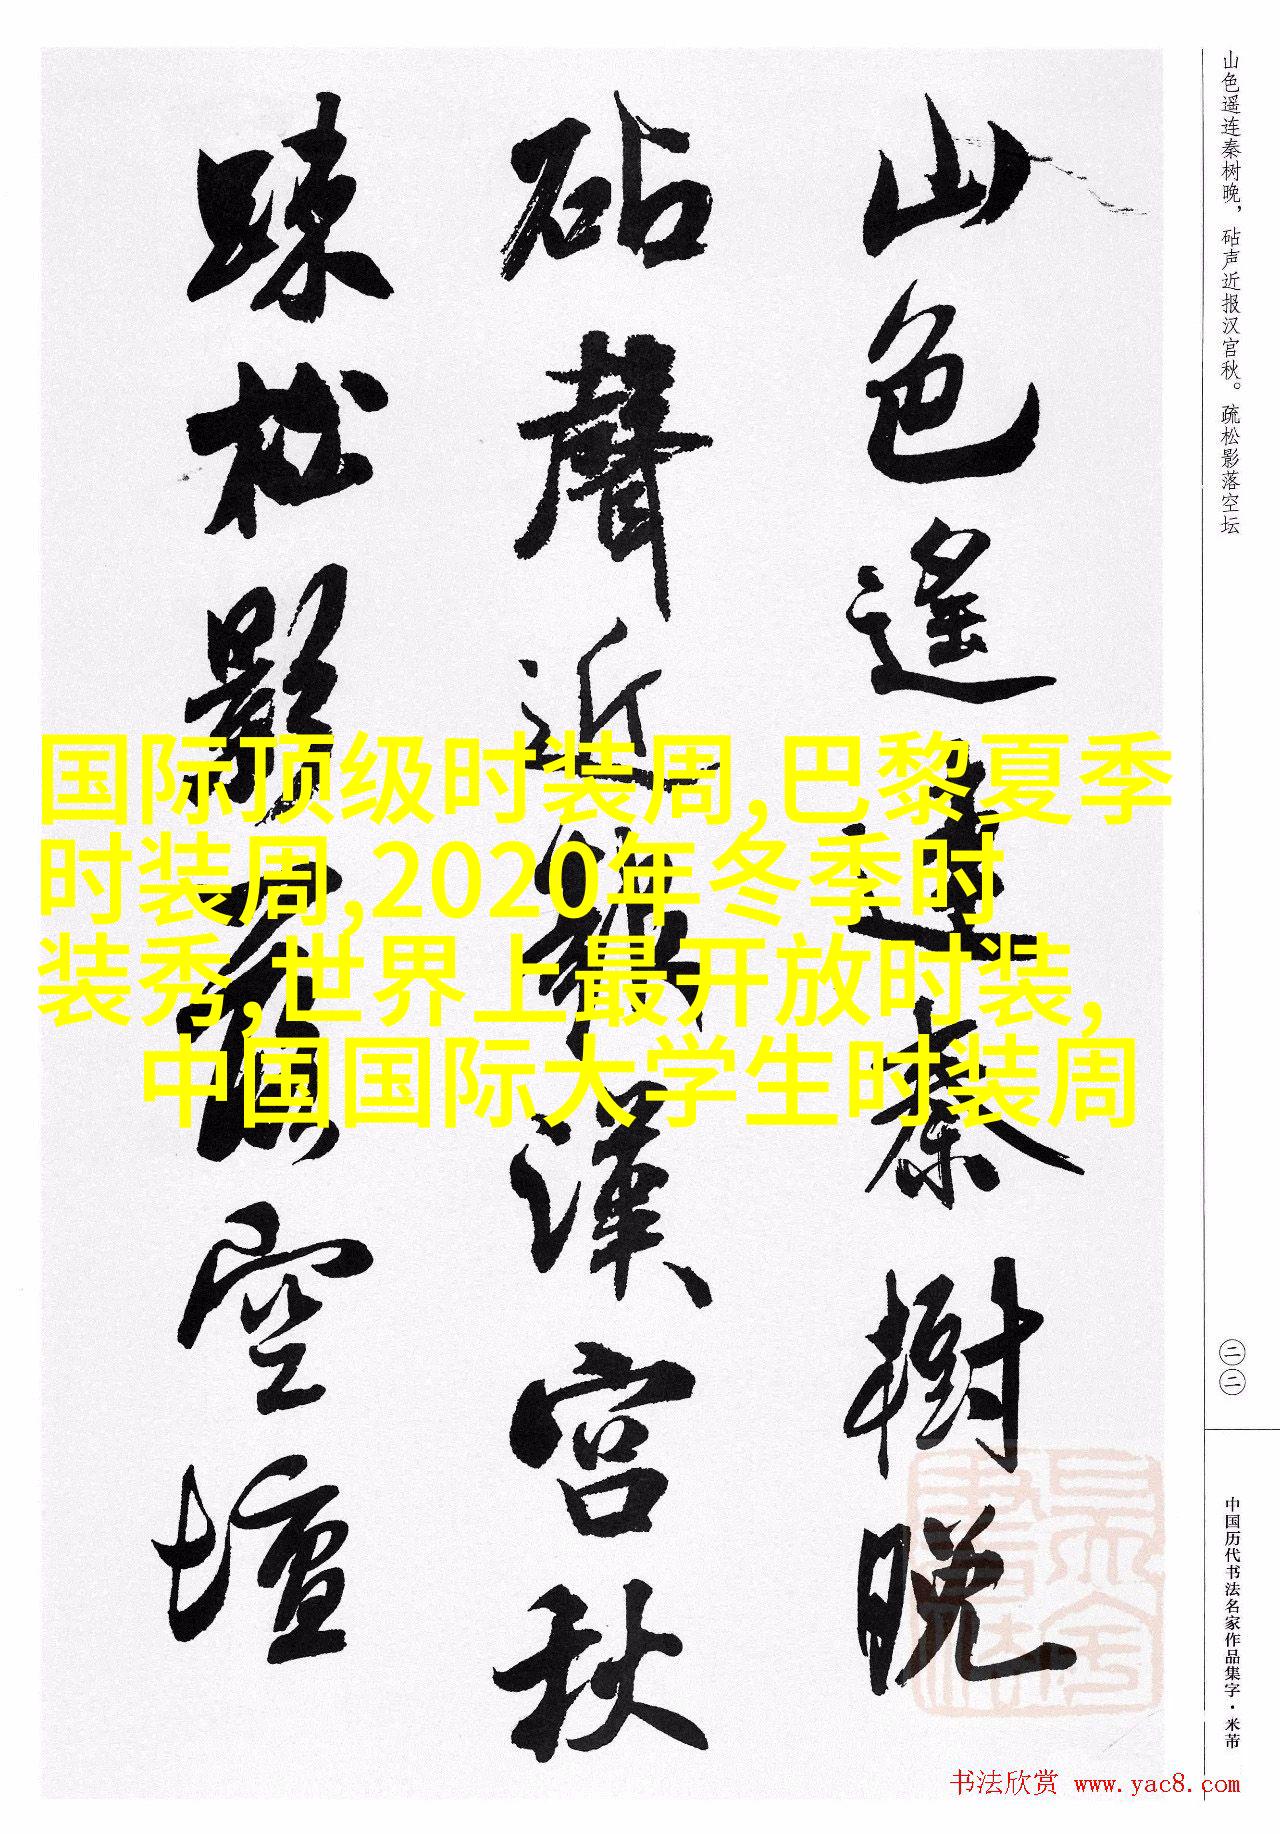 山色遥连秦树晚，砧声近报汉宫秋。疏松影落空坛
山色遥連秦樹晚
砧聲近報漢宮秋
踈松影落空壇
国际顶级时装周,巴黎夏季
时装周,2020年冬季时
装秀,世界上最开放时装,
中国国际大学生时装周
二二
中国历代书法名家作品集字·米芾
书法欣赏 www.yac8.com